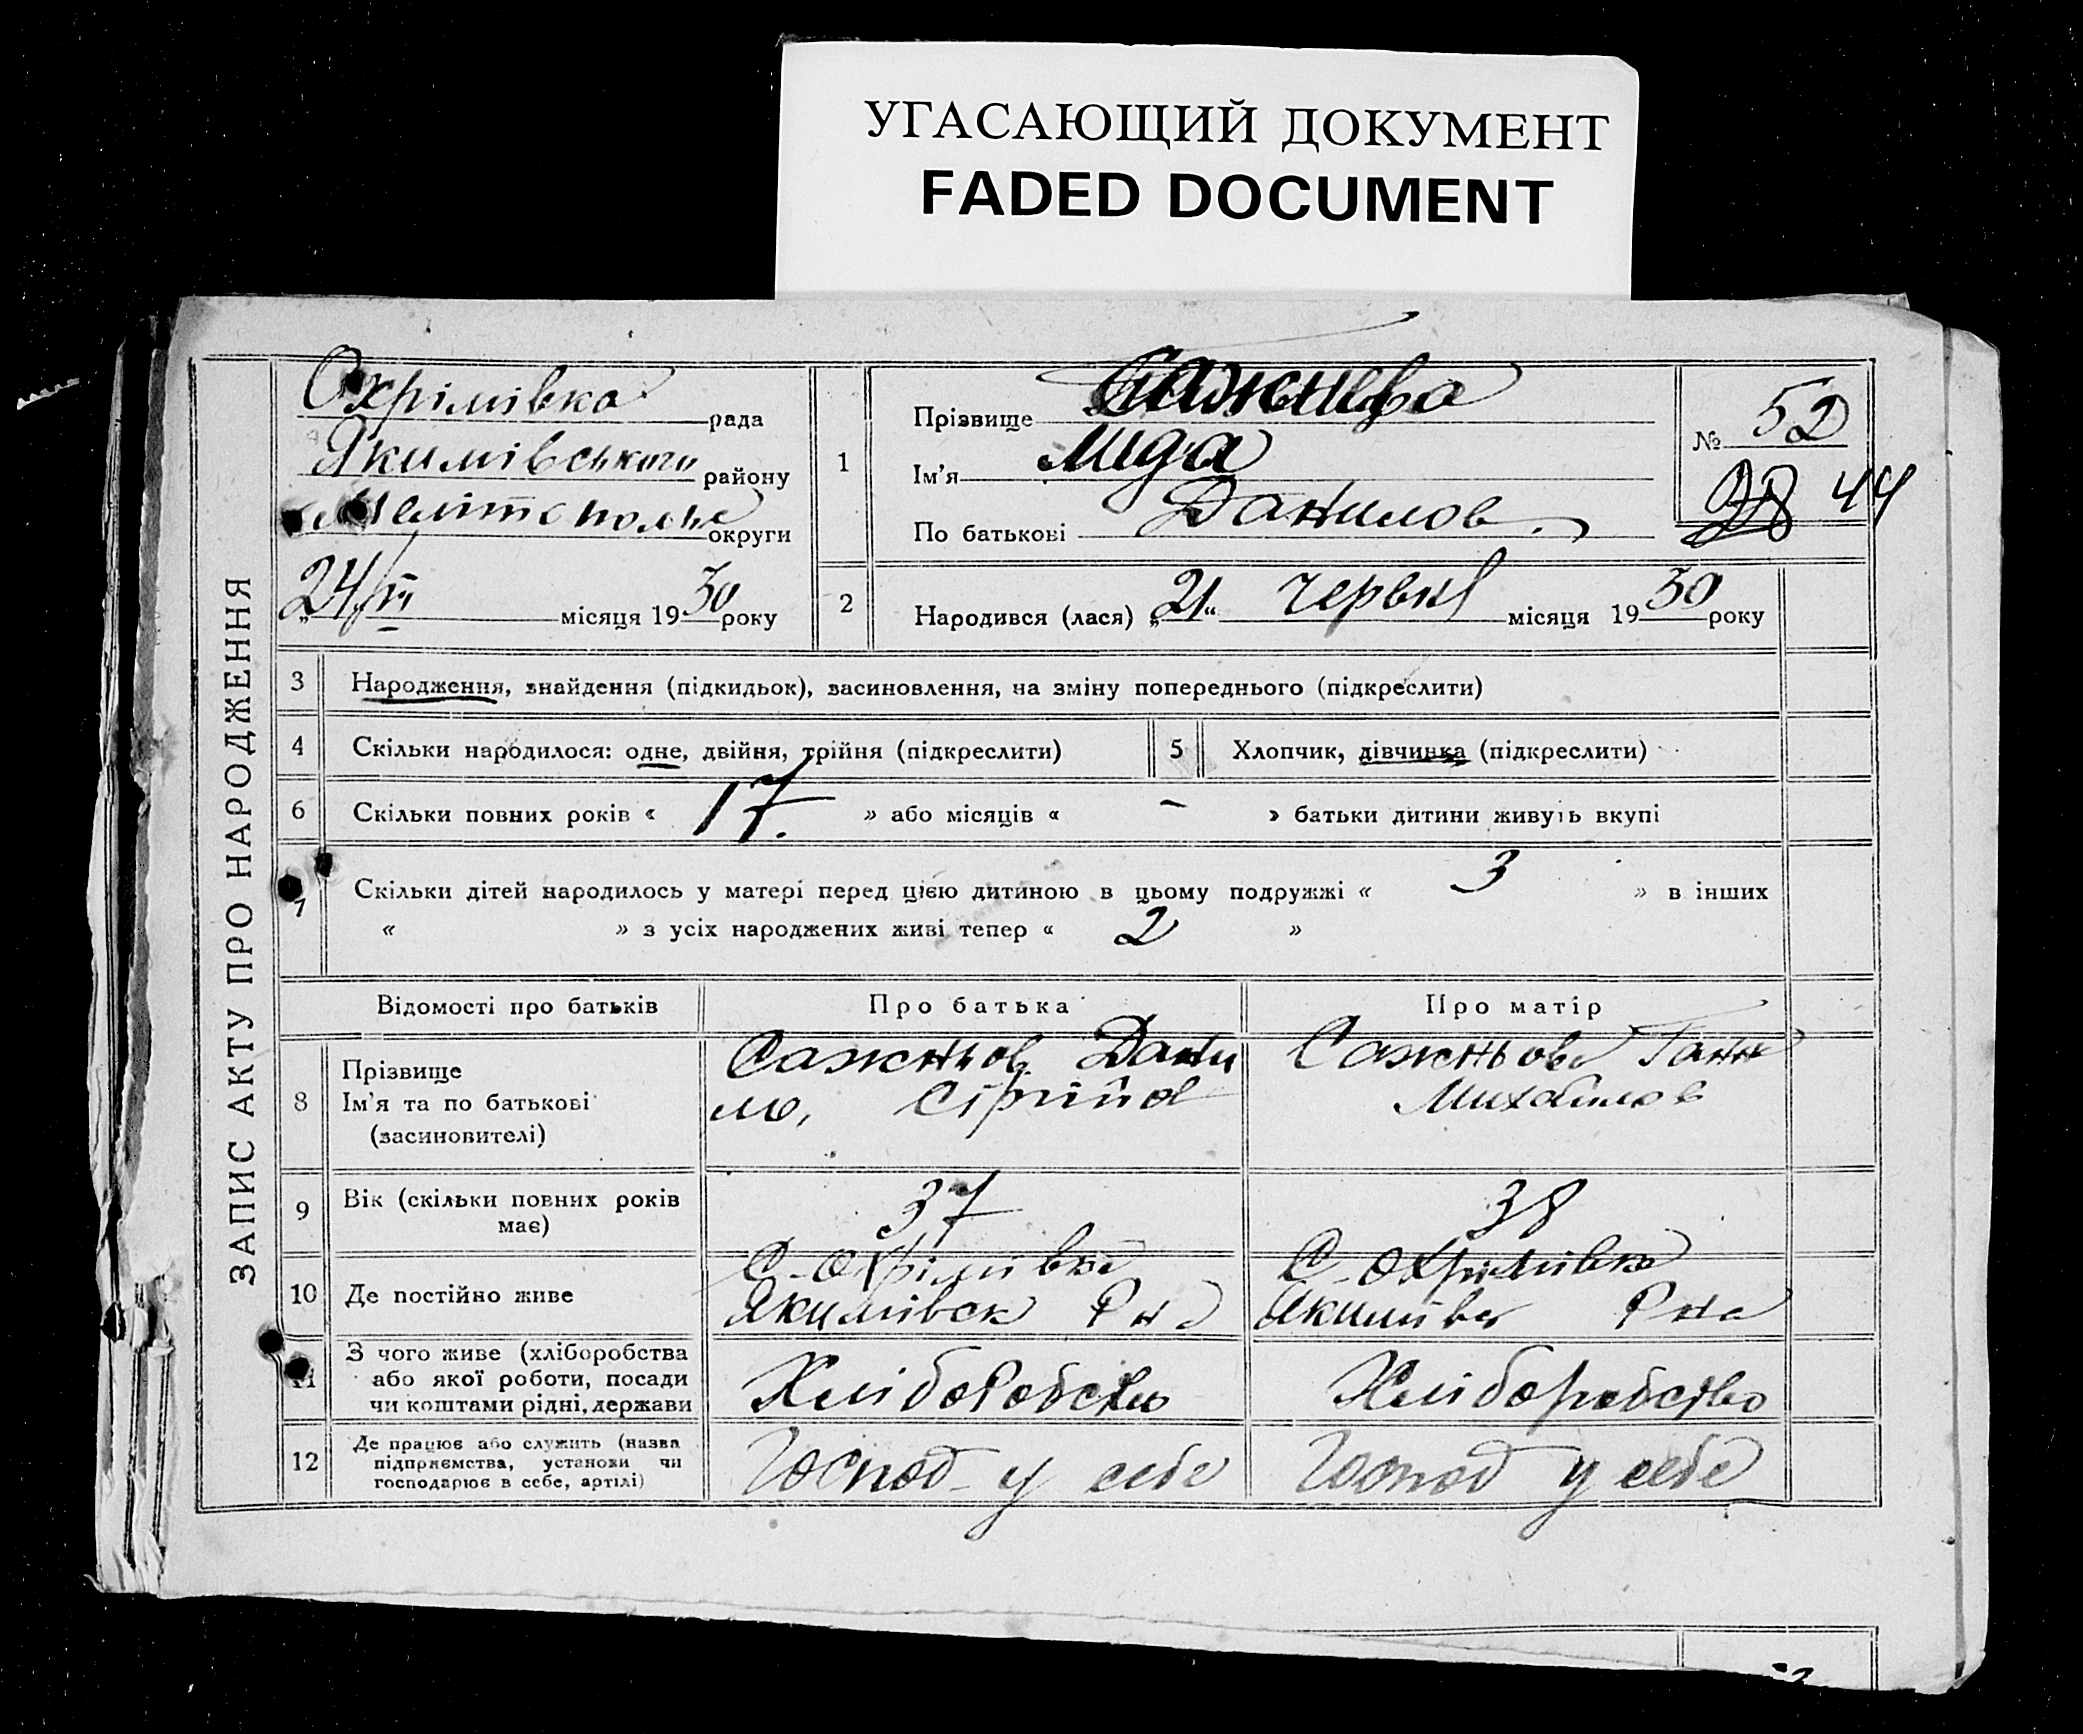 УГАСАЮЩИЙ ДОКУМЕНТ
FADED DOCUMENT
ЗАПИС АКТУ ПРО НАРОДЖЕННЯ
Охрімівка рада
Якимівського району
округи
24/VI місяця 1930 року
1
Прізвище Сажнева
Ім'я Лида
По батькові Данилов.
№ 52
44
2
Народився (лася) „21“ червня місяця 1930 року
3 Народження, знайдення (підкидьок), засиновлення, на зміну попереднього (підкреслити)
4 Скільки народилося: одне, двійня, трійня (підкреслити)
5 Хлопчик, дівчинка (підкреслити)
6 Скільки повних років « 17. » або місяців « – » батьки дитини живуть вкупі
7 Скільки дітей народилось у матері перед цією дитиною в цьому подружжі « 3 » в інших
« » з усіх народжених живі тепер « 2 »
Відомості про батьків
Про батька
Про матір
8 Прізвище
Ім'я та по батькові
(засиновителі)
Сажньов Дани
ло,
Сажньова Ганн
Михайлов
9 Вік (скільки повних років
має)
37
38
10 Де постійно живе
С-Охрімівка
Якимівск Рна
С-Охримівка
Якимівск Рна
11 З чого живе (хліборобства
або якої роботи, посади
чи коштами рідні, держави
Хліборобство
Хліборобство
12 Де працює або служить (назва
підприємства, установи чи
господарює в себе, артілі)
Господ у себе
Господ у себе